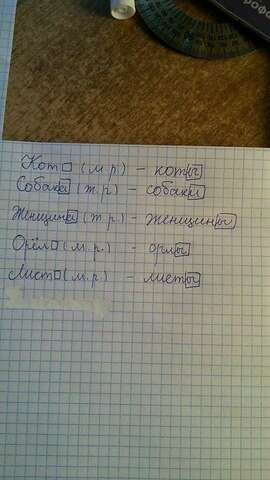 Кот□ (м.р) – коты
Собака (ж.р) – собаки
Женщина (ж.р) – женщины
Орёл□ (м.р.) – орлы
Лист□ (м.р) – листы